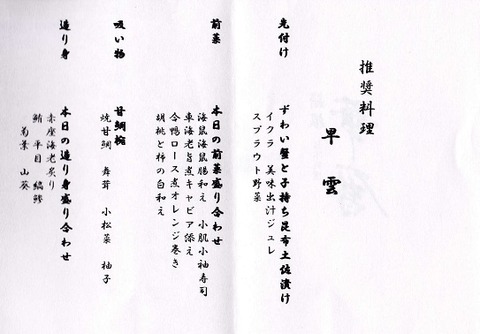 推奨料理
早雲
先付け
ずわい蟹と子持ち昆布土佐漬け
イクラ 美味出汁ジュレ
スプラウト野菜
前菜
本日の前菜盛り合わせ
海鼠海鼠腸和え 小肌小袖寿司
車海老旨煮キャビア添え
合鴨ロース煮オレンジ巻き
胡桃と柿の白和え
吸い物
甘鯛椀
焼甘鯛 舞茸 小松菜 柚子
造り身
本日の造り身盛り合わせ
赤座海老炙り
鮪 平目 縞鯵
菊葉 山葵